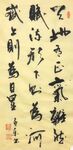 天地有正氣雜然
賦流形下則為河
嶽上則為日星